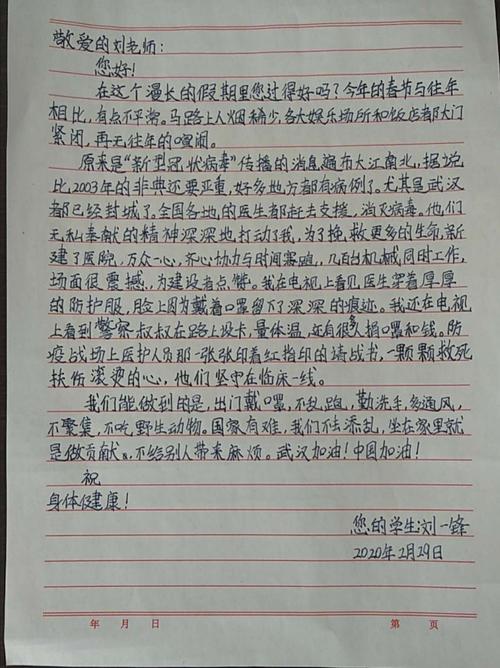 敬爱的刘老师：
您好！
在这个漫长的假期里您过得好吗？今年的春节与往年
相比，有点不平常。马路上人烟稀少，各大娱乐场所和饭店都大门
紧闭，再无往年的喧闹。
原来是“新型冠状病毒”传播的消息遍布大江南北，据说
比2003年的非典还要严重，好多地方都有病例了。尤其是武汉
都已经封城了。全国各地的医生都赶去支援，消灭病毒。他们
无私奉献的精神深深地打动了我，为了挽救更多的生命，新
建了医院，万众一心，齐心协力与时间赛跑，几百台机械同时工作，
场面很震撼，为建设者点赞。我在电视上看见医生穿着厚厚
的防护服，脸上因为戴着口罩留下了深深的痕迹。我还在电视
上看到警察叔叔在路上设卡，量体温，还有很多捐口罩和钱。防
疫战场上医护人员那一张张印着红指印的请战书，一颗颗救死
扶伤滚烫的心，他们坚守在临床一线。
我们能做到的是，出门戴口罩，不乱跑，勤洗手，多通风，
不聚集，不吃野生动物。国家有难，我们不去添乱，坐在家里就
是做贡献，不给别人带来麻烦。武汉加油！中国加油！
祝
身体健康！
您的学生：刘一锋
2020年2月29日
年 月 日 第 页